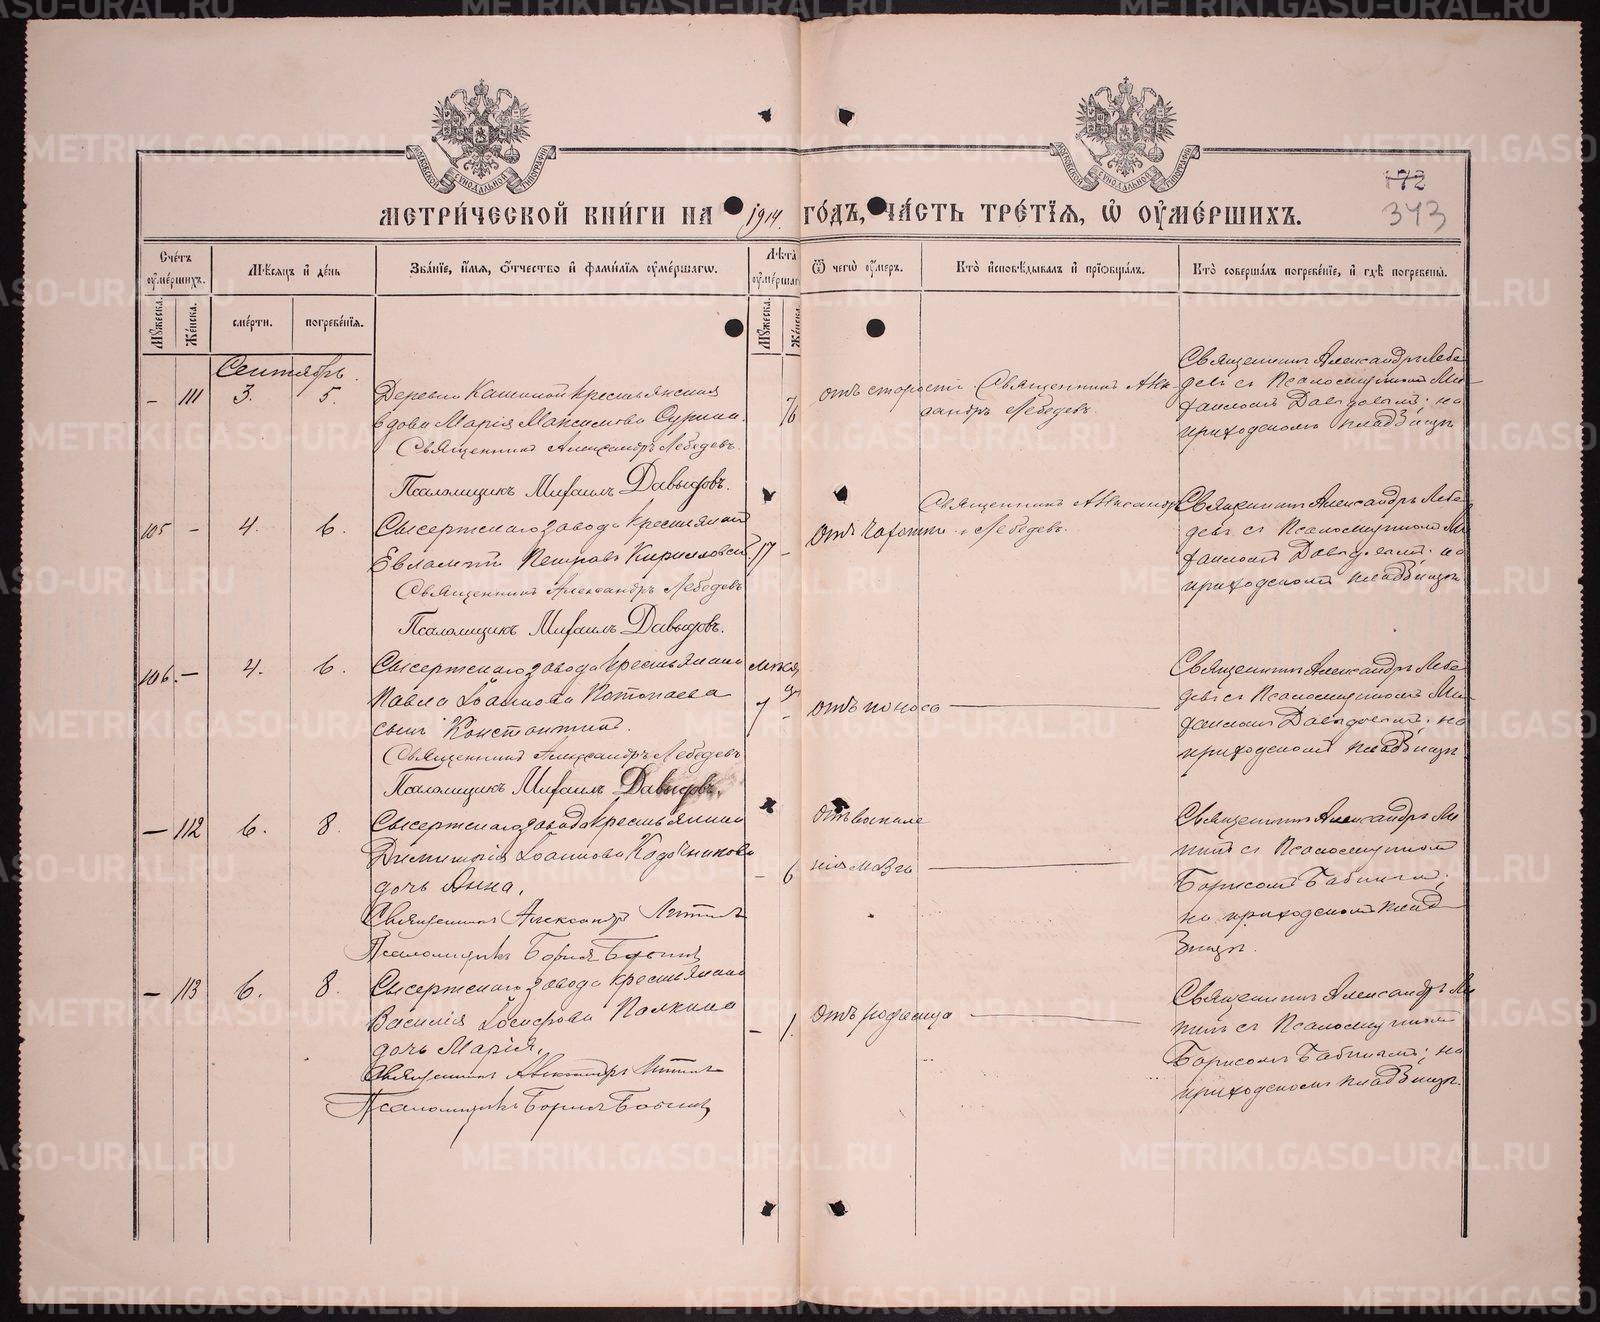 МЕТРИ́ЧЕСКОЙ КНИ́ГИ НА 1914 ГО́ДЪ, ЧА́СТЬ ТРЕ́ТІѦ, Ѡ ОУМЕ́РШИХЪ.
172
343
Сче́тъ оуме́ршихъ.
Мѣ́сѧцъ и҆ де́нь
Зва́нїе, и҆́мѧ, ѻ҆́тчество и҆ фами́лїѧ оуме́ршагѡ.
Лѣ́та оуме́ршаг
Ѿ чегѡ̀ оу́меръ.
Кто̀ и҆сповѣ́дывалъ и҆ прїѡбща́лъ.
Кто̀ соверша́лъ погребе́нїе, и҆ гдѣ̀ погребены̀.
Мꙋ́жеска.
Же́нска.
сме́рти.
погребе́нїѧ.
Мꙋ́жеска.
Же́нска.
Сентябрь.
– 111 3. 5. Деревни Кашиной крестьянская
вдова Марія Максимова Сурина.
Священникъ Александръ Лебедевъ.
Псаломщикъ Михаилъ Давыдовъ.
76
отъ старости
Священникъ Алек-
сандръ Лебедевъ.
Священникъ Александръ Лебе-
девъ съ Псаломщикомъ Ми-
хаиломъ Давыдовымъ; на
приходскомъ кладбищѣ
105 – 4. 6. Сысертскаго завода крестьянинъ
Евлампій Петровъ Кирилловскій
Священникъ Александръ Лебедевъ
Псаломщикъ Михаилъ Давыдовъ.
17 –
отъ чахотки
Священникъ Александръ
Лебедевъ.
Священникъ Александръ Лебе-
девъ съ Псаломщикомъ Ми-
хаиломъ Давыдовымъ; на
приходскомъ кладбищѣ
106. – 4. 6. Сысертскаго завода крестьянина
Павла Іоаннова Потопаева
сынъ Константинъ.
Священникъ Александръ Лебедевъ
Псаломщикъ Михаилъ Давыдовъ.
7 –
отъ поноса
Священникъ Александръ Лебе-
девъ съ Псаломщикомъ Ми-
хаиломъ Давыдовымъ; на
приходскомъ кладбищѣ
– 112 6. 8. Сысертскаго завода крестьянина
Димитрія Іоаннова Кадочникова
дочь Анна.
Священникъ Александръ
Псаломщикъ Борисъ Бабинъ
– 6
отъ воспале
нія мозга
Священникъ Александръ Ми
съ Псаломщикомъ
Борисомъ Бабинымъ;
на приходскомъ клад
бищѣ.
– 113 6. 8. Сысертскаго завода крестьянина
Василія Іосифова Палкина
дочь Марія.
Священникъ Александръ
Псаломщикъ Борисъ Бабинъ
– 1.
отъ родимца
Священникъ Александръ Ми
съ Псаломщикомъ
Борисомъ Бабинымъ; на
приходскомъ кладбищѣ.
METRIKI.GASO-URAL.RU